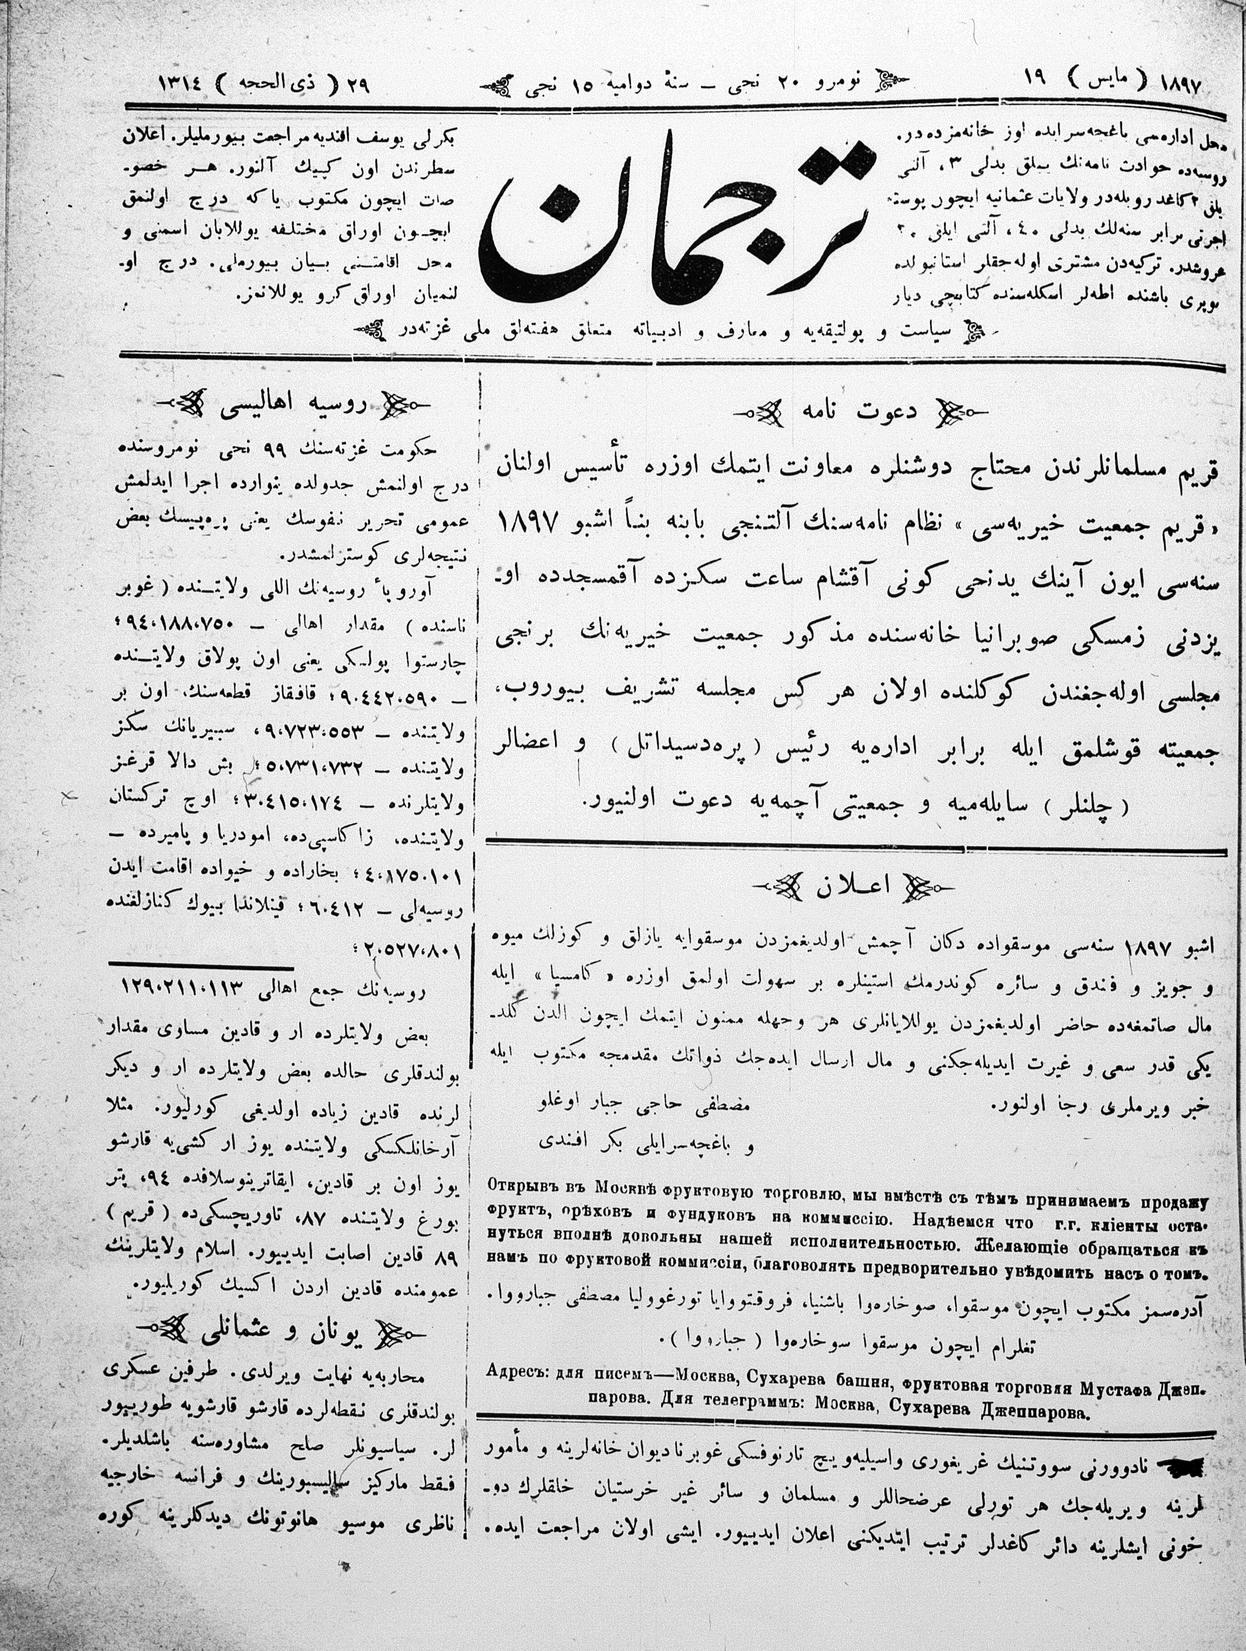 ١٨٩٧ ( مايس ) ١٩
نومرو ٢٠ نجى ــ سنۀ دواميه ١٥ نجى
٢٩ ( ذى الحجه ) ١٣١٤
محل اداره‌سى باغچه‌سرايده اوز خانه‌مزده‌در.
روسيه‌ده حوادت نامه‌نك ييللق بدلى ٣، آلتى
كاغد روبله‌در ولايات عثمانيه ايچون پوسته
اجرتى برابر سنه‌لك بدلى ٤٠، آلتى ايلق ٢٠
غروشدر. تركيه‌دن مشترى اوله‌جقلر استانبولده
كوپرى باشنده اطه‌لر اسكله‌سنده كتابچى ديار
ترجمان
بكرلى يوسف افنديه مراجعت بيورمليلر. اعلان
سطرندن اون كپيك آلنور. هــر خصوـ
صات ايچون مكتوب ياكه درج اولنمق
ايچــون اوراق مختلفه يوللايان اسمنى و
محل اقامتــنى بيـان بيورملى. درج اوـ
لنميان اوراق كرو يوللانمز.
سياست و پولتيقه‌يه و معارف و ادبياته متعلق هفته‌لق ملى غزته‌در
دعوت نامه
قريم مسلمانلرندن محتاج دوشنلره معاونت ايتمك اوزره تأسيس اولنان
«قريم جمعيت خيريه‌سى» نظام نامه‌سنك آلتنجى بابنه بنـاً اشبو ١٨٩٧
سنه‌سى ايون آينك يدنجى كونى آقشام ساعت سكزده آقمسجدده اوـ
يزدنى زمسكى صوبرانيا خانه‌سنده مذكور جمعيت خيريه‌نك برنجى
مجلسى اوله‌جغندن كوكلنده اولان هر كس مجلسه تشريف بيوروب،
جمعيته قوشلمق ايله برابر اداره‌يه رئيس ( پره‌دسيداتل ) و اعضالر
( چلنلر ) سايله‌ميه و جمعيتى آچمه‌يه دعوت اولنيور.
اعـلان
اشبو ١٨٩٧ سنه‌سى موسقواده دكان آچمش اولديغمزدن موسقوايه يازلق و كوزلك ميوه
و جويز و فندق و سائره كوندرمك استينلره بر سهولت اولمق اوزره «كامسيا» ايله
مال صاتمغه‌ده حاضر اولديغمزدن يوللايانلرى هر وجهله ممنون ايتمك ايچون الدن كلدـ
يكى قدر سعى و غيرت ايديله‌جكنى و مال ارسال ايده‌جك ذواتك مقدمجه مكتوب ايله
خبر ويرملرى رجا اولنور.
مصطفى حاجى جبار اوغلو
و باغچه‌سرايلى بكر افندى
Открывъ въ Москвѣ фруктовую торговлю, мы вмѣстѣ съ тѣмъ принимаемъ продажу
фруктъ, орѣховъ и фундуковъ на коммиссію. Надѣемся что г.г. кліенты оста-
нуться вполнѣ довольны нашей исполнительностью. Желающіе обращаться къ
намъ по фруктовой коммиссіи, благоволять предворительно увѣдомить насъ о томъ.
آدره‌سمز مكتوب ايچون موسقوا، صوخاره‌وا باشنيا، فروقتووايا تورغووليا مصطفى جبارووا.
تغلرام ايچون موسقوا سوخاره‌وا ( جبارووا ).
Адресъ: для писемъ—Москва, Сухарева башня, фруктовая торговля Мустафа Джеп-
парова. Для телеграммъ: Москва, Сухарева Джеппарова.
نادوورنى سووتنيك غريغورى واسيليه‌ويچ تارنوفسكى غوبرنا ديوان خانه‌لرينه و مأمور
لرينه ويريله‌جك هر تورلى عرضحاللر و مسلمان و سائر غير خرستيان خلقلرك دوـ
خونى ايشلرينه دائر كاغدلر ترتيب ايتديكنى اعلان ايدييور. ايشى اولان مراجعت ايده.
روسيه اهاليسى
حكومت غزته‌سنك ٩٩ نجى نومروسنده
درج اولنمش جدولده ينوارده اجرا ايدلمش
عمومى تحرير نفوسك يعنى پره‌پيسك بعض
نتيجه‌لرى كوسترلمشدر.
آوروپا روسيه‌نك اللى ولايتــنده ( غوبر
ناسنده ) مقدار اهالى ــ ٩٤،١٨٨،٧٥٠؛
چارستوا پولسكى يعنى اون پولاق ولايتــنده
ــ ٩،٤٤٢،٥٩٠؛ قافقاز قطعه‌سنك، اون بر
ولايتنده ــ ٩،٧٢٣،٥٥٣، سيبريانك سكز
ولايتنده ــ ٥،٧٣١،٧٣٢؛ بش دالا قرغز
ولايتلرنده ــ ٣،٤١٥،١٧٤؛ اوچ تركستان
ولايتنده، زاكاسپى‌ده، امودريا و پاميرده ــ
٤،١٧٥،١٠١؛ بخاراده و خيواده اقامت ايدن
روسيه‌لى ــ ٦،٤١٢؛ فينلاندا بيوك كنازلغنده
٢،٥٢٧،٨٠١؛
روسيه‌نك جمع اهالى ١٢٩،٢١١،١١٣
بعض ولايتلرده ار و قادين مساوى مقدار
بولندقلرى حالده بعض ولايتلرده ار و ديكر
لرنده قادين زياده اولديغى كورليور. مثلا
آرخانلسكى ولايتنده يوز ار كشى‌يه قارشو
يوز اون بر قادين، ايقاترينوسلافده ٩٤، پتر
بورغ ولايتنده ٨٧، تاوريچسكى‌ده ( قريم )
٨٩ قادين اصابت ايدييور. اسلام ولايتلرينك
عمومنده قادين اردن اكسيك كوريليور.
يونان و عثمانلى
محاربه‌يه نهايت ويرلدى. طرفين عسكرى
بولندقلرى نقطه‌لرده قارشو قارشويه طوريور
لر. سياسيونلر صلح مشاوره‌سنه باشلديلر.
فقط ماركيز ساليسبورينك و فرانسه خارجيه
ناظرى موسيو هانوتونك ديدكلرينه كوره